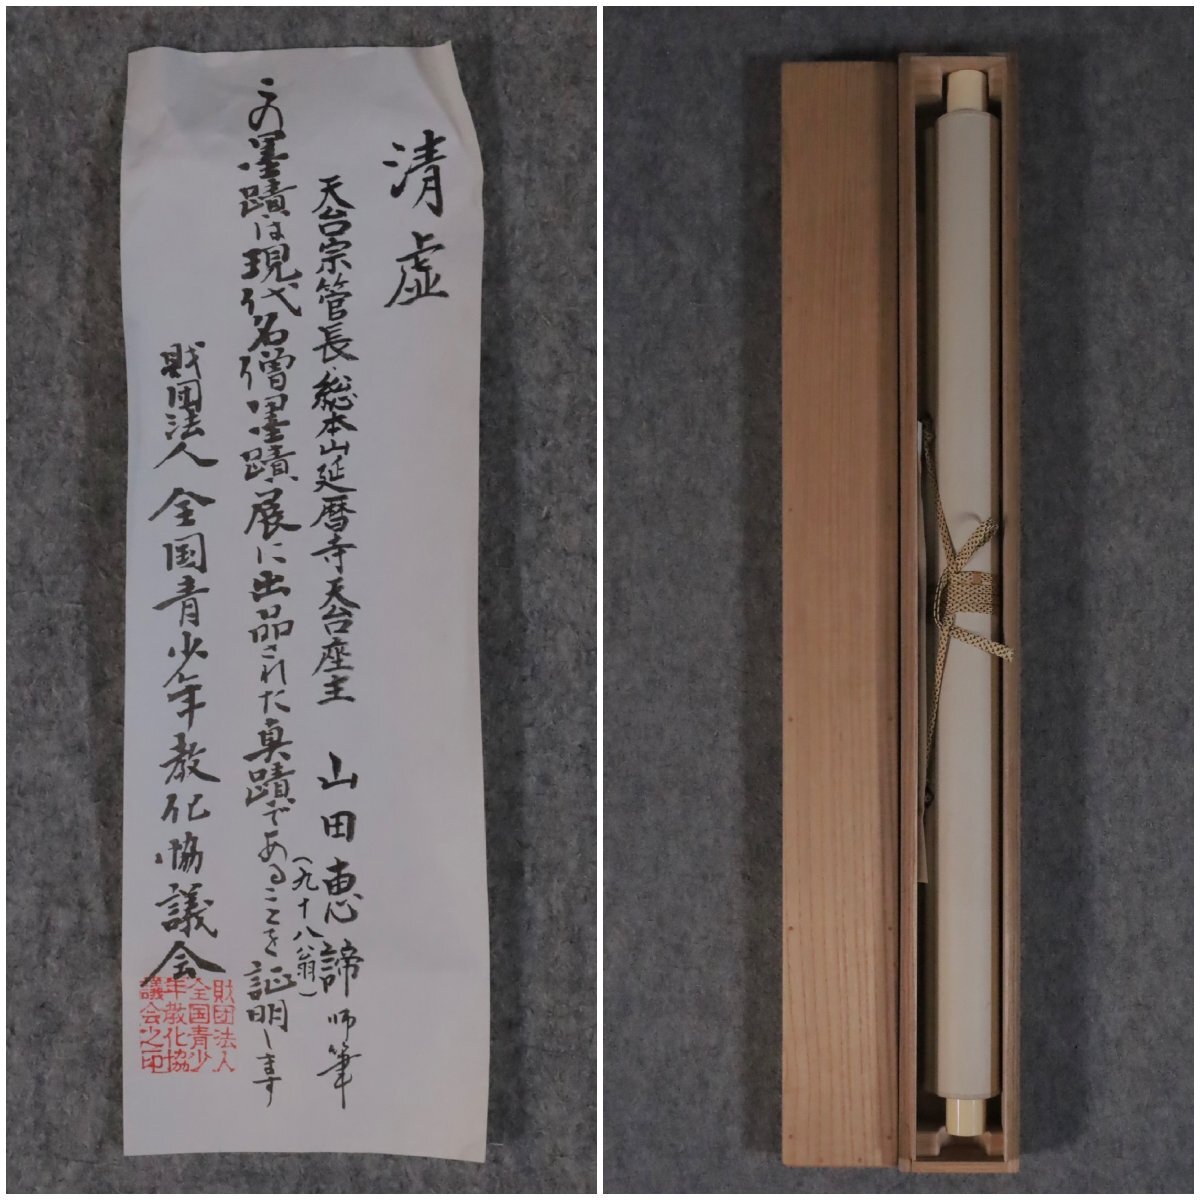 清虚
天台宗管長・総本山延暦寺天台座主 山田恵諦師筆
(九十八翁)
この墨蹟は現代名僧墨蹟展に出品された真蹟であることを証明します
財団法人 全国青少年教化協議会
財団法人
全国青少
年教化協
議会之印